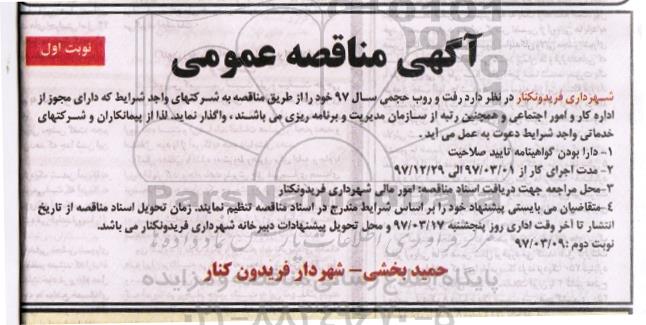 آگهی مناقصه عمومی
نوبت اول
شهرداری فریدونکنار در نظر دارد رفت و روب حجمی سال ۹۷ خود را از طریق مناقصه به شرکتهای واجد شرایط که دارای مجوز از
اداره کار و امور اجتماعی و همچنین رتبه از سازمان مدیریت و برنامه ریزی می باشند ، واگذار نماید. لذا از پیمانکاران و شرکتهای
خدماتی واجد شرایط دعوت به عمل می آید .
۱- دارا بودن گواهینامه تایید صلاحیت
۲- مدت اجرای کار از ۹۷/۰۳/۰۱ الی ۹۷/۱۲/۲۹
۳-محل مراجعه جهت دریافت اسناد مناقصه: امور مالی شهرداری فریدونکنار
٤-متقاضیان می بایستی پیشنهاد خود را بر اساس شرایط مندرج در اسناد مناقصه تنظیم نمایند. زمان تحویل اسناد مناقصه از تاریخ
انتشار تا آخر وقت اداری روز پنجشنبه ۹۷/۰۳/۱۷ و محل تحویل پیشنهادات دبیرخانه شهرداری فریدونکنار می باشد.
نوبت دوم :۹۷/۰۳/۰۹
حمید بخشی- شهردار فریدون کنار